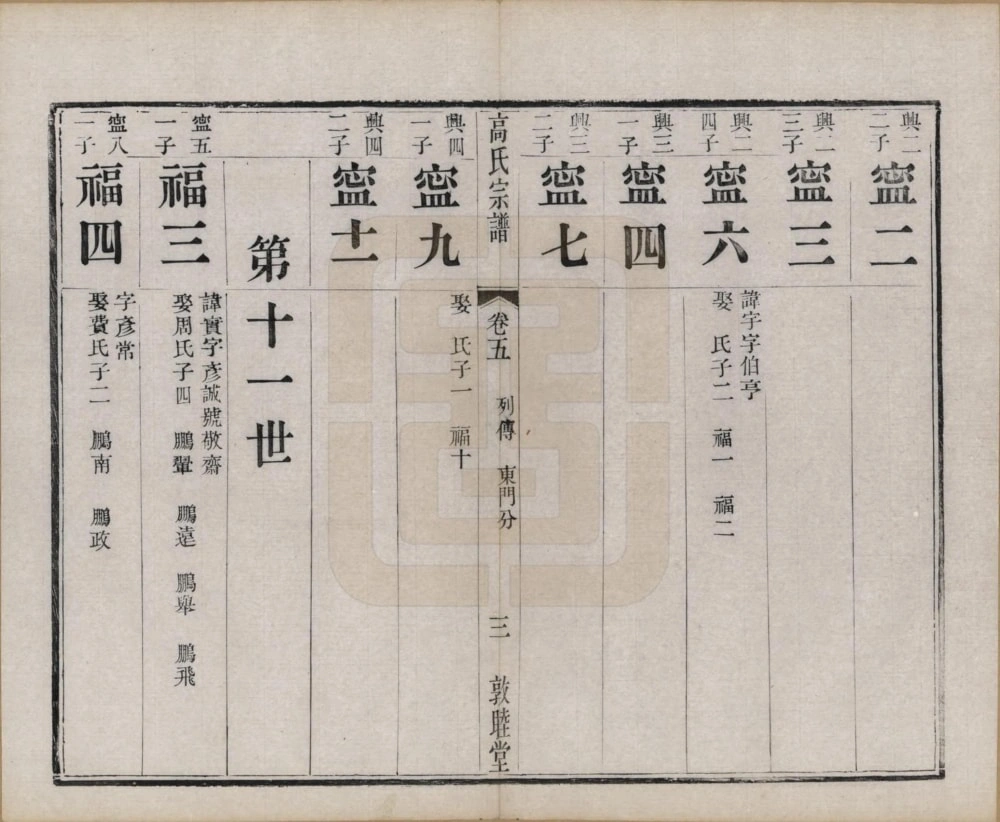 興二
二子
寍二
興二
三子
寍三
興二
四子
寍六
諱字字伯亨
娶 氏子二 福一 福二
興三
一子
寍四
興三
二子
寍七
高氏宗譜
卷五 列傳 東門分 三 敦睦堂
興四
一子
寍九
娶 氏子一 福十
興四
二子
寍十一
第十一世
寍五
一子
福三
諱實字彥誠號敬齋
娶周氏子四 鵬舉 鵬遠 鵬舉 鵬飛
寍八
一子
福四
字彥常
娶費氏子二 鵬南 鵬政